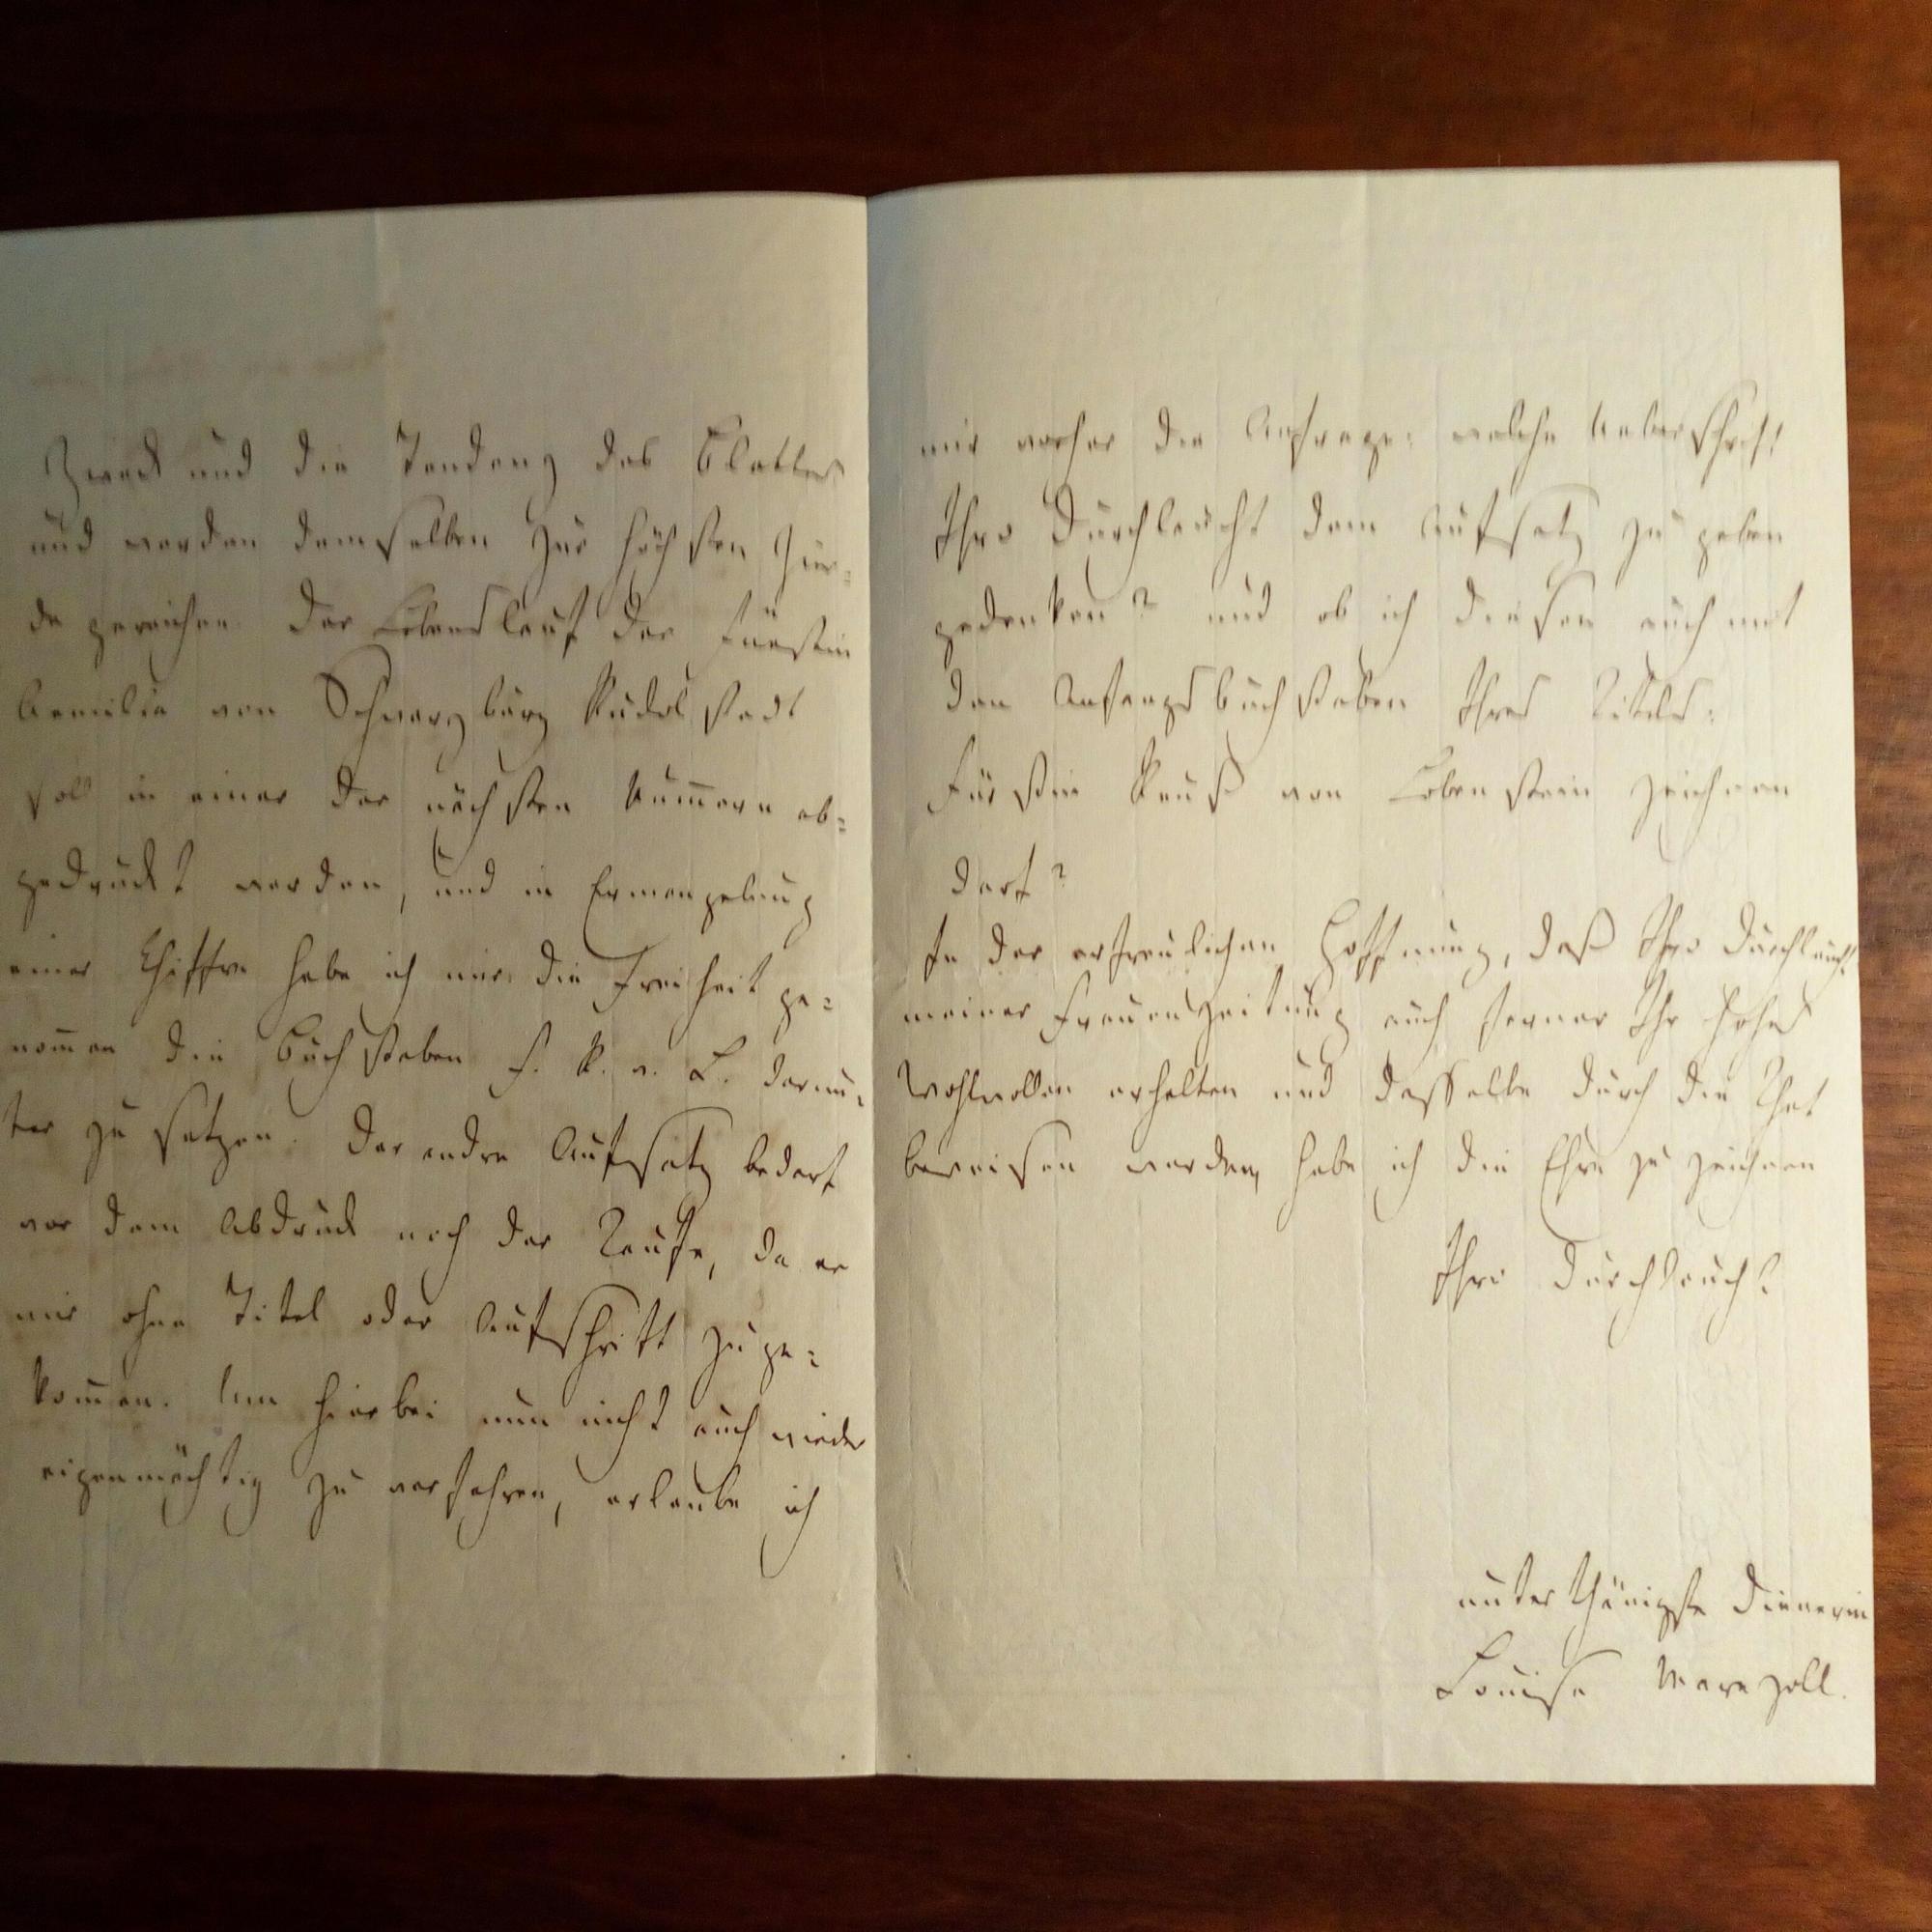 Zweck und die Tendenz des Blattes
und werden demselben zur höchsten Zier-
de gereichen. Der Lebenslauf der Fürstin
Aemilie von Schwarzburg Rudolstadt
soll in einer der nächsten Num̄ern ab=
gedruckt werden, und in Ermangelung
einer Chiffre habe ich mir die Freiheit ge=
nom̄en die Buchstaben F. R. v. L. darun-
ter zu setzen. Der andre Aufsatz bedarf
vor dem Abdruck noch der Taufe, da er
mir ohne Titel oder Aufschrift zuge=
kom̄en. Um hierbei nun nicht auch wieder
eigenmächtig zu verfahren, erlaube ich
mir vorher die Anfrage: welche Ueberschrift
Ihro Durchlaucht dem Aufsatz zu geben
gedenken? und ob ich diesen auch mit
den Anfangsbuchstaben Ihres Titels:
Fürstin Reuß von Lobenstein zeichnen
darf?
In der erfreulichen Hoffnung, daß Ihro Durchlaucht
meiner Frauenzeitung auch ferner Ihr hohes
Wohlwollen erhalten und dasselbe durch die That
beweisen werden, habe ich die Ehre zu zeichnen
Ihro Durchlaucht
unterthänigste Dienerin
Louise Marezoll.